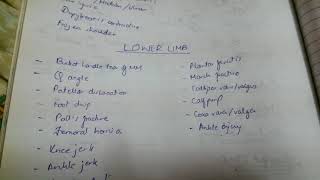 Dupuytren's contracture
Frozen shoulder
LOWER LIMB
- Bucket handle tear of
- Q angle
- Patellar dislocation
- Foot drop
- Pott's fracture
- Femoral hernia
- Knee jerk
- Ankle jerk
- Plantar fascitis
- March fracture
- Calf pump
- Coxa vara/valga
- Ankle injury